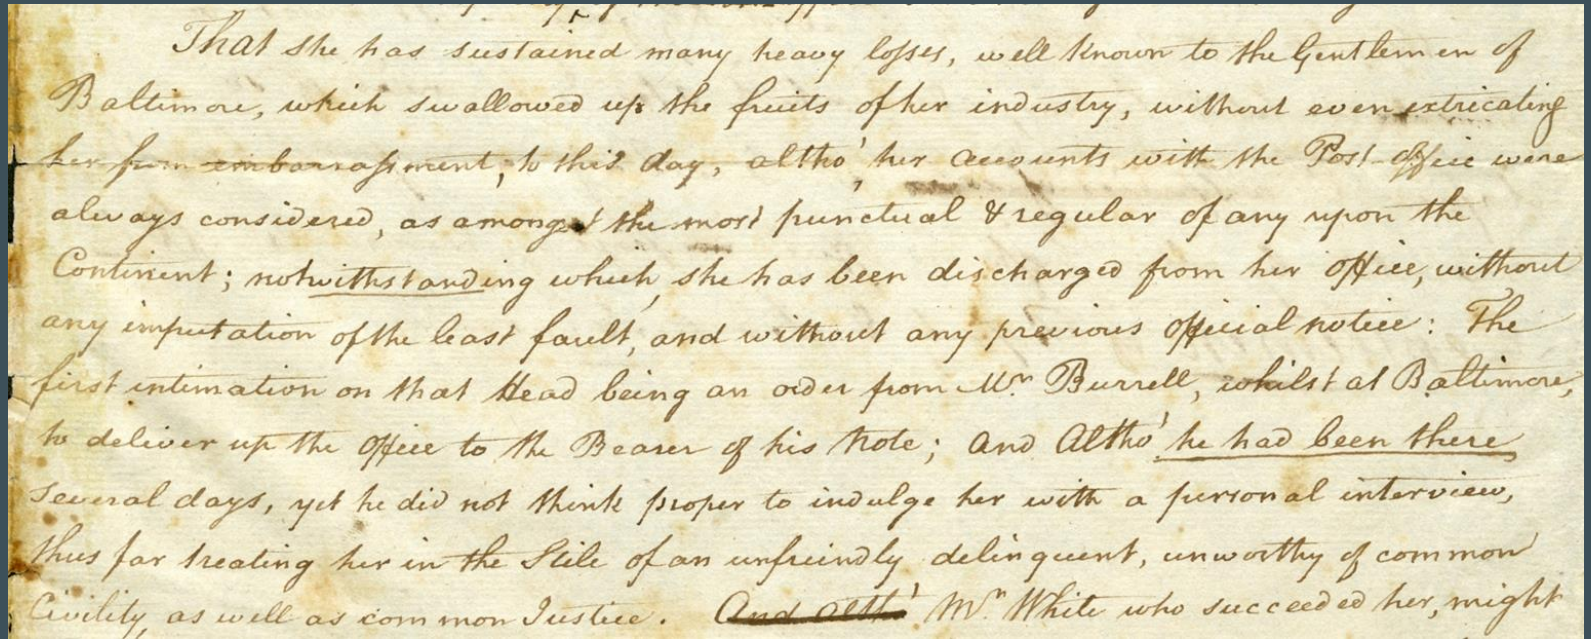 That she has sustained many heavy losses, well known to the Gentlemen of
Baltimore, which swallowed up the fruits of her industry, without even extricating
her from embarrassment, to this day, altho' her accounts with the Post-office were
always considered, as amongst the most punctual & regular of any upon the
Continent; notwithstanding which, she has been discharged from her Office, without
any imputation of the least fault, and without any previous official notice: The
first intimation on that Head being an order from Mr. Burrell, whilst at Baltimore,
to deliver up the Office to the Bearer of his Note; and Altho' he had been there
several days, yet he did not think proper to indulge her with a personal interview,
thus far treating her in the Stile of an unfreindly delinquent, unworthy of common
Civility, as well as common Justice. And altho' Mr. White who succeeded her, might